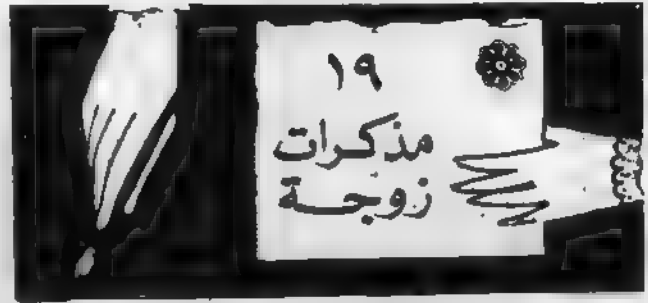 ١٩
مذكرات
زوجة